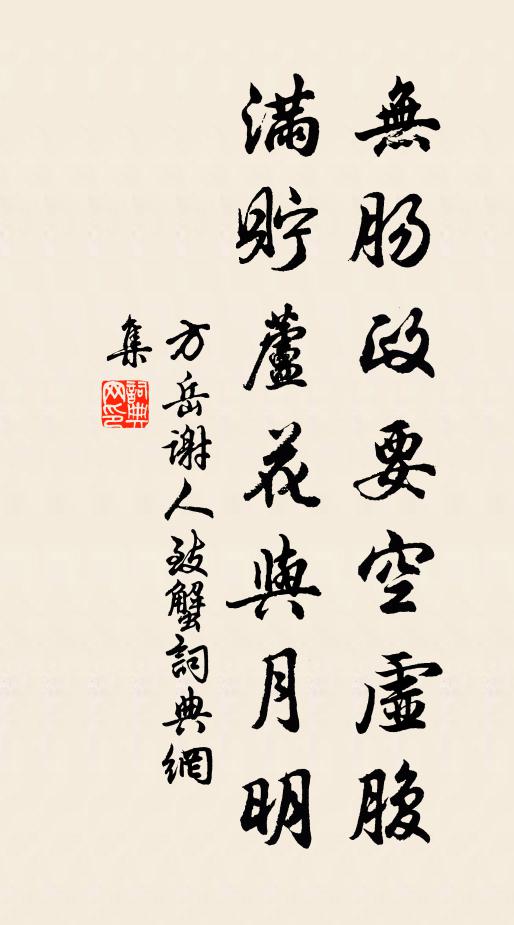 無肠政要空虛腹
滿貯蘆花與月明
方岳謝人致蟹詞典網
集
詞典網印